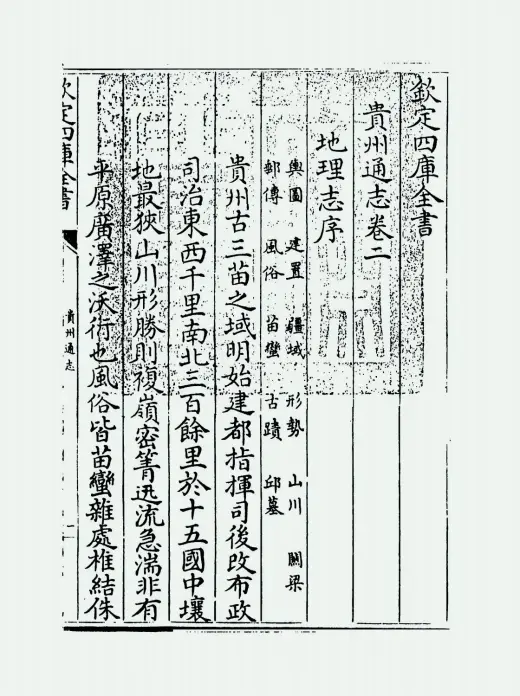 欽定四庫全書
貴州通志卷二
地理志序
輿圖 建置 疆域 形勢 山川 關梁
郵傳 風俗 苗蠻 古蹟 邱墓
貴州古三苗之域明始建都指揮司後改布政
司治東西千里南北三百餘里於十五國中壤
地最狹山川形勝則複嶺密箐迅流急湍非有
平原廣澤之沃衍也風俗皆苗蠻雜處椎結侏
欽定四庫全書
貴州通志